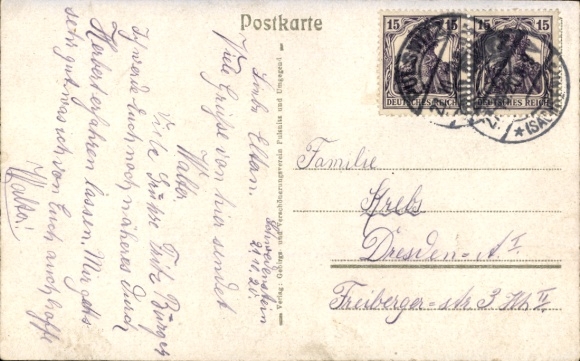 Postkarte
15 15
DEUTSCHES REICH DEUTSCHES REICH
PULSNITZ
Schwedenstein
21.11.20.
Liebe Eltern.
Viele Grüße von hier sendet
Walter
Viele Grüße Fritz Bürger
Ich werde Euch noch näheres durch
Herbert erfahren lassen. Mir gehts
sehr gut was ich von Euch auch hoffe
Walter
Verlag: Gebirgs- und Verschönerungsverein Pulsnitz und Umgegend
Familie
Krebs
Dresden-A I
Freiberger-str. 3, Hh II